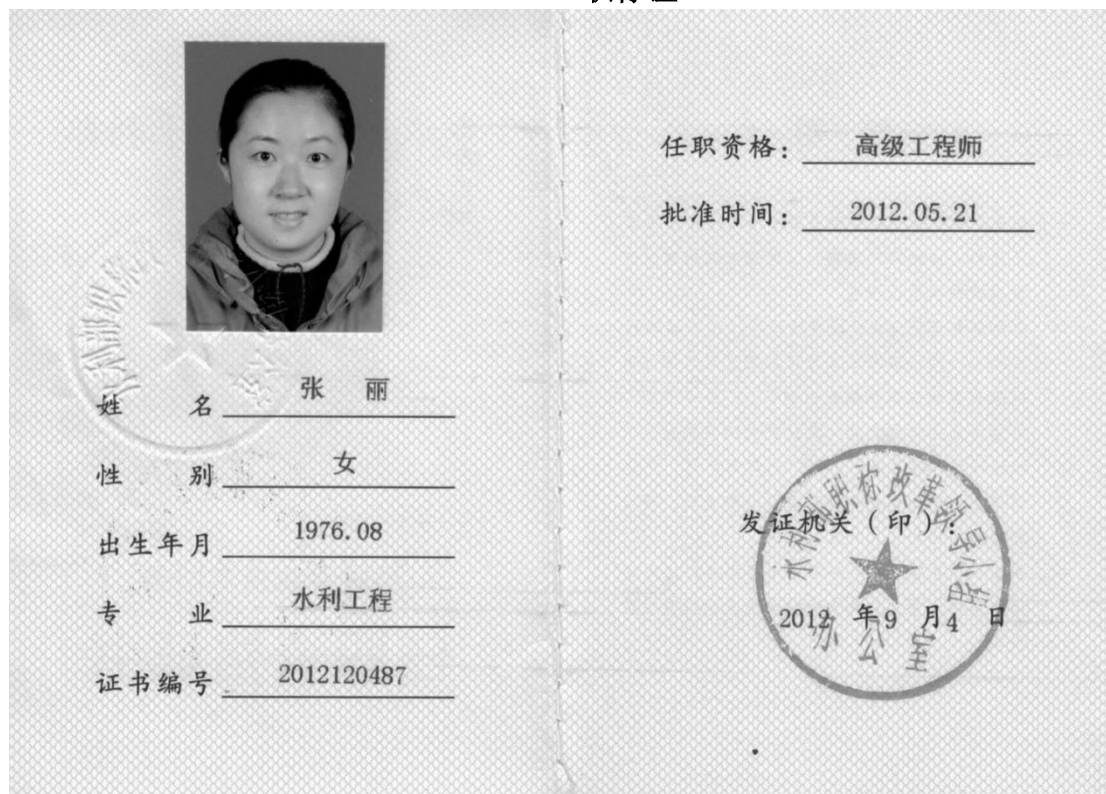 姓名 张丽
性别 女
出生年月 1976.08
专业 水利工程
证书编号 2012120487
任职资格： 高级工程师
批准时间： 2012.05.21
发证机关（印）：
水利部职称改革领导小组
办公室
2012 年 9 月 4 日